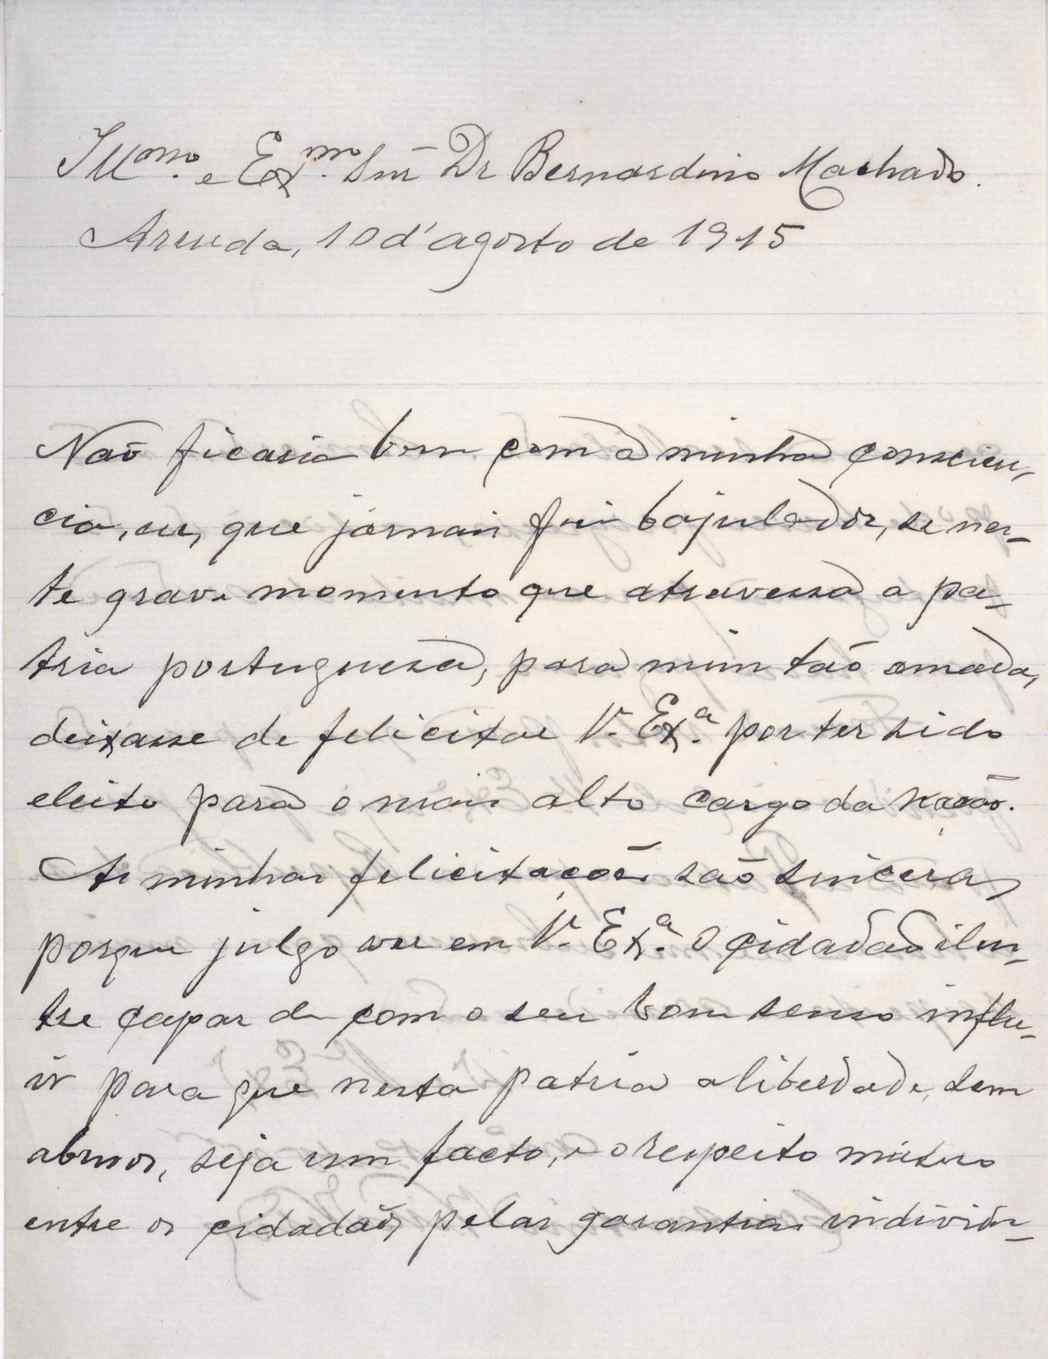 Illmo. e Exmo. Snr Dr Bernardino Machado.
Arruda, 10 d'agosto de 1915
Não ficaria bem com a minha conscien-
cia, eu, que jamais fui bajulador, se nes-
te grave momento que atravessa a pa-
tria portuguesa, para mim tão amada,
deixasse de felicitar V. Exa. por ter sido
eleito para o mais alto cargo da nação.
As minhas felicitações são sinceras,
porque julgo ver em V. Exa. o cidadão ilus-
tre capaz de com o seu bom senso influ-
ir para que nesta patria a liberdade, sem
abusos, seja um facto, e o respeito mutuo
entre os cidadãos, pelas garantias individu-